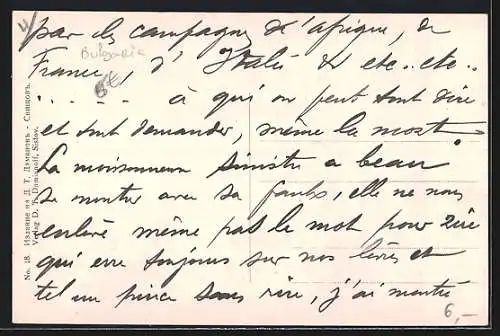 4/
par les campagnes d'afrique, de
Bulgarie
France, d'Italie & etc..etc..
6€
. . . . . à qui on peut tout dire
et tout demander, même la mort!
La moissonneuse sinistre a beau
se montrer avec sa faulx, elle ne nous
enlève même pas le mot pour rire
qui erre toujours sur nos lèvres et
tel un pince sans rire, j'ai montré
6,-
No. 18. Издание на Д. Т. Дамяновъ - Свищовъ.
Verlag D. T. Damianoff, Sistov.